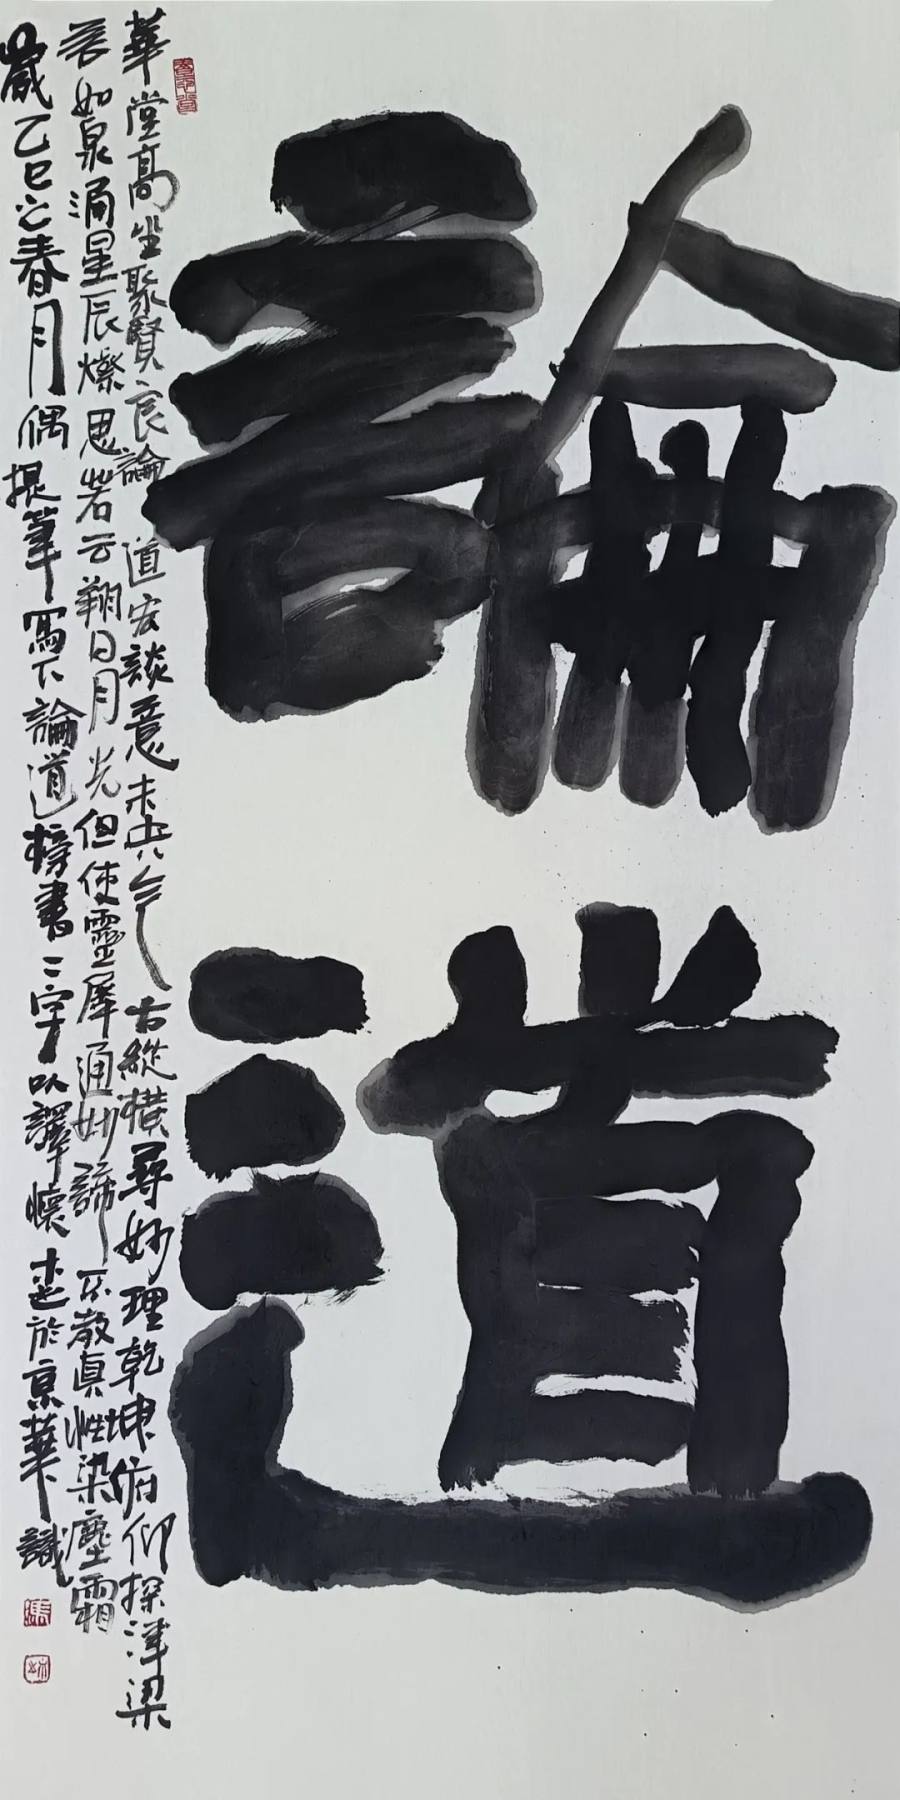 論道
華堂高坐聚賢良論道宏談意未央今古縱橫尋妙理乾坤俯仰探津梁
言如泉涌星辰燦思若云翔日月光但使靈犀通妙諦不教真性染塵霜
歲乙巳之春月偶提筆寫下論道榜書二字以譯懷 於京華識